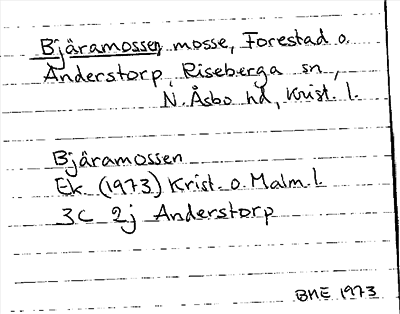 Bjäramossen, mosse, Forestad o.
Anderstorp, Riseberga sn,
N. Åsbo hd, Krist. l.
Bjäramossen
Ek. (1973) Krist. o. Malm. l.
3C 2j Anderstorp
BHE 1973